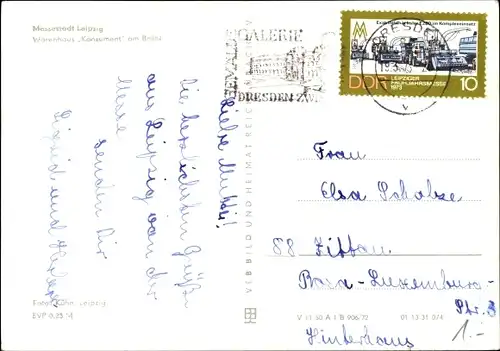 Messestadt Leipzig
Warenhaus „Konsument“ am Brühl
Liebe Mutti!
Die herzlichsten Grüße
aus Leipzig von der
Messe
senden Dir
Sigrid und
Foto: Leipzig
EVP 0,25 M
VEB BILD UND HEIMAT
V 11 50 A 1 B 906/72
01 13 31 074
GALERIE
DRESDEN
DRESDEN
DDR
LEIPZIGER
FRÜHJAHRSMESSE
1973
10
Frau
Elsa Scholze
88 Zittau
Rosa-Luxemburg-
Str. 3
Hinterhaus
1.-